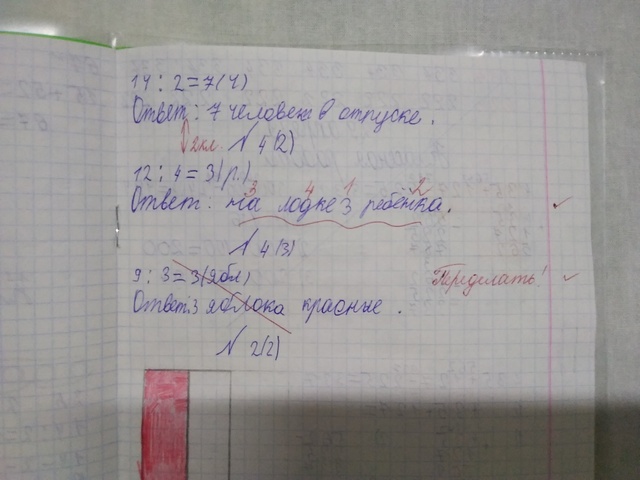 14 : 2 = 7 (ч)
Ответ: 7 человек в отпуске.
2кл. N 4(2)
12 : 4 = 3 (р.)
3 4 1 2
Ответ: на лодке 3 ребёнка.
N 4(3)
9 : 3 = 3 (ябл) Переделать!
Ответ: 3 яблока красные.
N 2(2)